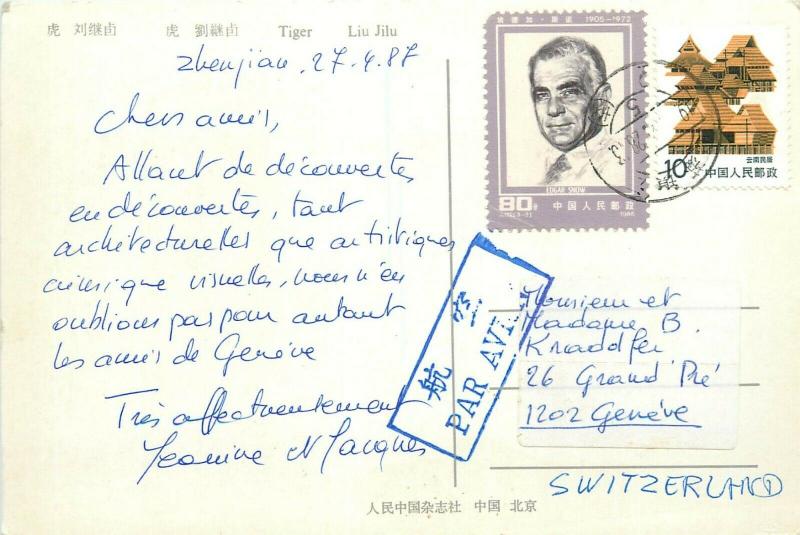 虎 刘继卣 虎 劉繼卣 Tiger Liu Jilu
Zhenjian, 27.4.87
Chers amis,
Allant de découvertes
en découvertes, tant
architecturelles que artistiques
ainsi que visuelles, nous n'en
oublions pas pour autant
les amis de Genève
Très affectueusement
Jeanine et Jacques
埃德加·斯诺 1905-1972
EDGAR SNOW
80分 中国人民邮政
1985
云南民居
10分
中国人民邮政
航空
PAR AVION
Monsieur et
Madame B.
26 Grand Pré
1202 Genève
SWITZERLAND
人民中国杂志社 中国 北京